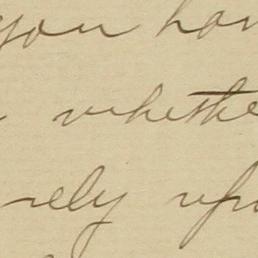 you hav
whethe
rely upo